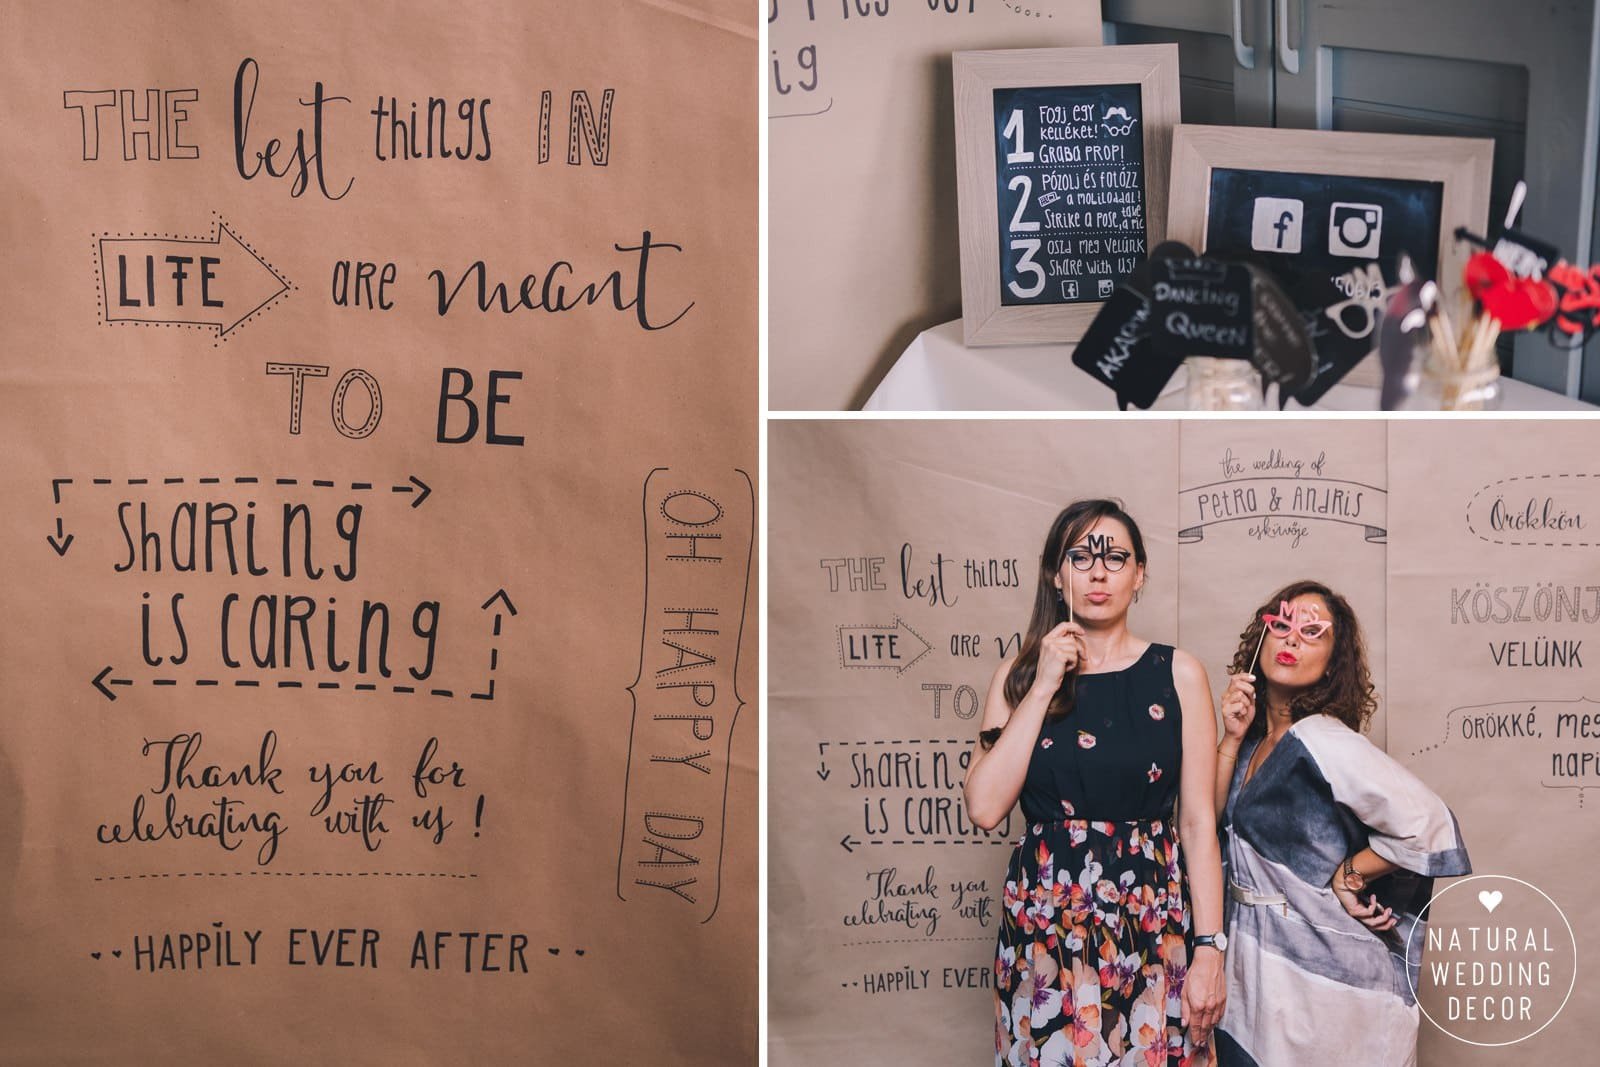 THE best things IN
LIFE are meant
TO BE
sharing
is caring
OH HAPPY DAY
Thank you for
celebrating with us!
HAPPILY EVER AFTER
ig
1
Fogj egy
kelléket!
GRAB A PROP!
2
Pózolj és fotózz
a mobiloddal!
Strike a pose, take
a pic
3
Oszd meg velünk
Share with us!
f
f
DANCING
QUEEN
the wedding of
PETRA & ANDRIS
esküvője
Mr
MRS
THE best things
LIFE are
TO
sharing
is caring
Thank you
celebrating with
HAPPILY EVER
Örökkön
KÖSZÖNJ
VELÜNK
ÖRÖKKÉ, meg
napi
NATURAL
WEDDING
DECOR